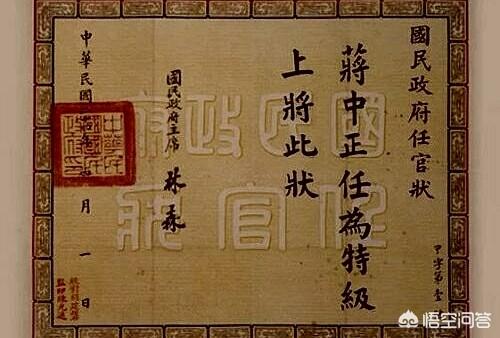 國民政府任官狀
甲字第壹
蔣中正任為特級
上將此狀
國民政府主席 林森
中華民國 月一日
國民政府
任官狀
悟空问答